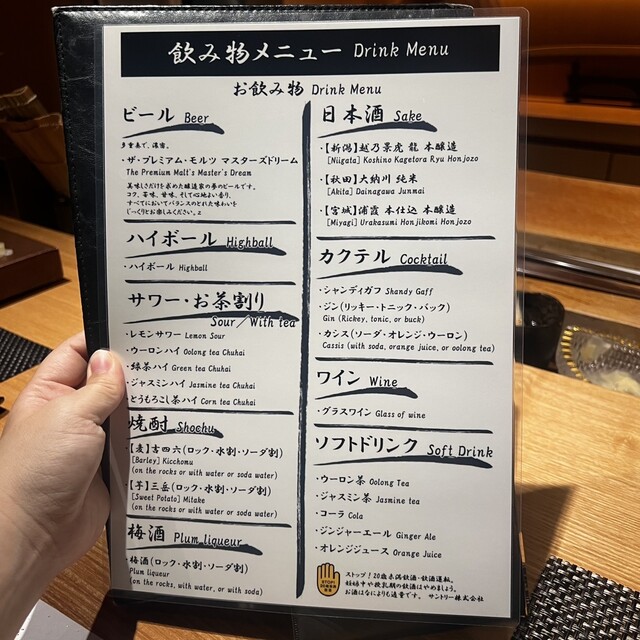 飲み物メニュー Drink Menu
お飲み物 Drink Menu
ビール Beer
多重奏で、濃密。
・ザ・プレミアム・モルツ マスターズドリーム
The Premium Malt's Master's Dream
美味しさだけを求めた醸造家の夢のビールです。
コク、苦味、甘味、そして心地よい香り。
すべてにおいてバランスのとれた味わいを
じっくりとお楽しみください。
ハイボール Highball
・ハイボール Highball
サワー・お茶割り
Sour/With tea
・レモンサワー Lemon Sour
・ウーロンハイ Oolong tea Chuhai
・緑茶ハイ Green tea Chuhai
・ジャスミンハイ Jasmine tea Chuhai
・とうもろこし茶ハイ Corn tea Chuhai
焼酎 Shochu
・【麦】吉四六(ロック・水割・ソーダ割)
[Barley] Kicchomu
(on the rocks or with water or soda water)
・【芋】三岳(ロック・水割・ソーダ割)
[Sweet Potato] Mitake
(on the rocks or with water or soda water)
梅酒 Plum liqueur
・梅酒(ロック・水割・ソーダ割)
Plum liqueur
(on the rocks, with water, or with soda)
日本酒 Sake
・【新潟】越乃景虎 龍 本醸造
[Niigata] Koshino Kagetora Ryu Honjozo
・【秋田】大納川 純米
[Akita] Dainagawa Junmai
・【宮城】浦霞 本仕込 本醸造
[Miyagi] Urakasumi Honjikomi Honjozo
カクテル Cocktail
・シャンディガフ Shandy Gaff
・ジン(リッキー・トニック・バック)
Gin (Rickey, tonic, or buck)
・カシス(ソーダ・オレンジ・ウーロン)
Cassis (with soda, orange juice, or oolong tea)
ワイン Wine
・グラスワイン Glass of wine
ソフトドリンク Soft Drink
・ウーロン茶 Oolong Tea
・ジャスミン茶 Jasmine tea
・コーラ Cola
・ジンジャーエール Ginger Ale
・オレンジジュース Orange Juice
STOP!
ストップ!20歳未満飲酒・飲酒運転。
妊娠中や授乳期の飲酒はやめましょう。
お酒はなによりも適量です。 サントリー株式会社